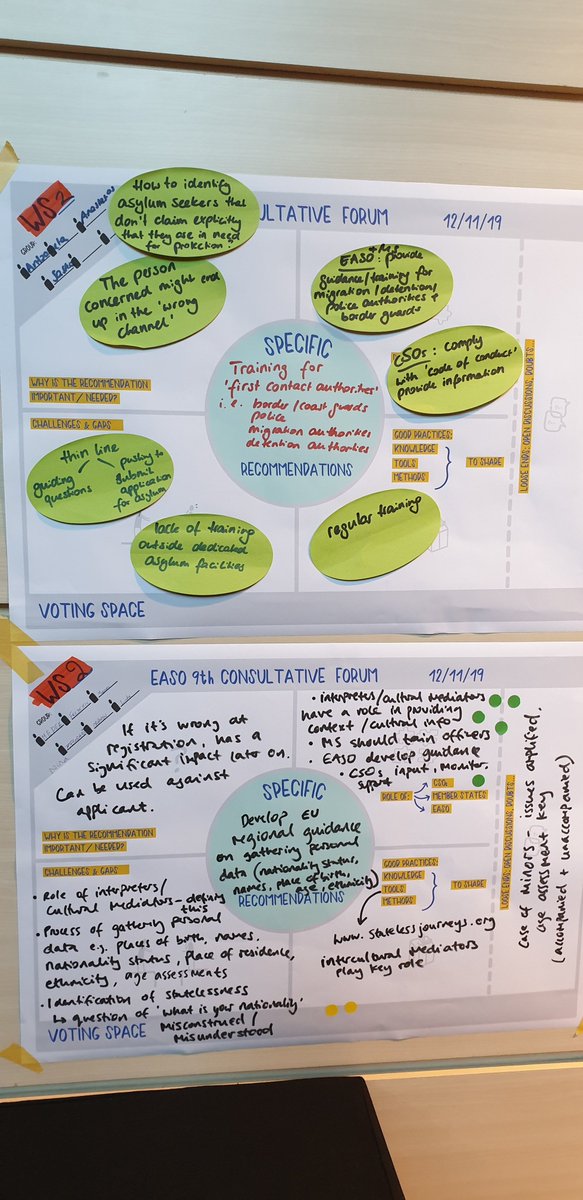 WS 2
GROUP:
Antonella
Anastasias
How to identify
asylum seekers that
don't claim explicity
that they are in need
for protection
ULTATIVE FORUM
12/11/19
The person
concerned might end
up in the 'wrong
channel'
+ MS
EASO: provide
guidance/training for
migration/detention/
police authorities +
border guards
CSOs: comply
with 'code of conduct'
provide information
WHY IS THE RECOMMENDATION
IMPORTANT/ NEEDED?
SPECIFIC
Training for
'first contact authorities'
i.e. border/coast guards
police
migration authorities
detention authorities
RECOMMENDATIONS
CHALLENGES & GAPS
thin line
guiding
questions
pushing to
submit
application
for asylum
lack of training
outside dedicated
asylum facilities
GOOD PRACTICES:
KNOWLEDGE
TOOLS
METHODS
TO SHARE
regular training
LOOSE ENDS: OPEN DISCUSSIONS, DOUBTS...
VOTING SPACE
WS 2
GROUP:
Nina
EASO 9th CONSULTATIVE FORUM
12/11/19
If it's wrong at
registration, has a
significant impact later on.
Can be used against
applicant.
• interpreters/cultural mediators
have a role in providing
context/cultural info
• MS should train officers
• EASO develop guidance
• CSOs input, monitor.
ROLE OF:
CSOs
MEMBER STATES
EASO
WHY IS THE RECOMMENDATION
IMPORTANT/ NEEDED?
SPECIFIC
Develop EU
regional guidance
on gathering personal
data (nationality status,
names, place of birth,
age, ethnicity)
RECOMMENDATIONS
CHALLENGES & GAPS
• Role of interpreters/
Cultural Mediators - defining
this
• Process of gathering personal
data e.g. places of birth, names,
nationality status, place of residence,
ethnicity, age assessments
• Identification of statelessness
↳ question of 'what is your nationality'
misconstrued/
misunderstood
GOOD PRACTICES:
KNOWLEDGE
TOOLS
METHODS
TO SHARE
www.statelessjourneys.org
intercultural mediators
play key role
LOOSE ENDS: OPEN DISCUSSIONS, DOUBTS...
Case of minors - issues amplified,
age assessment key
(accompanied + unaccompanied)
VOTING SPACE